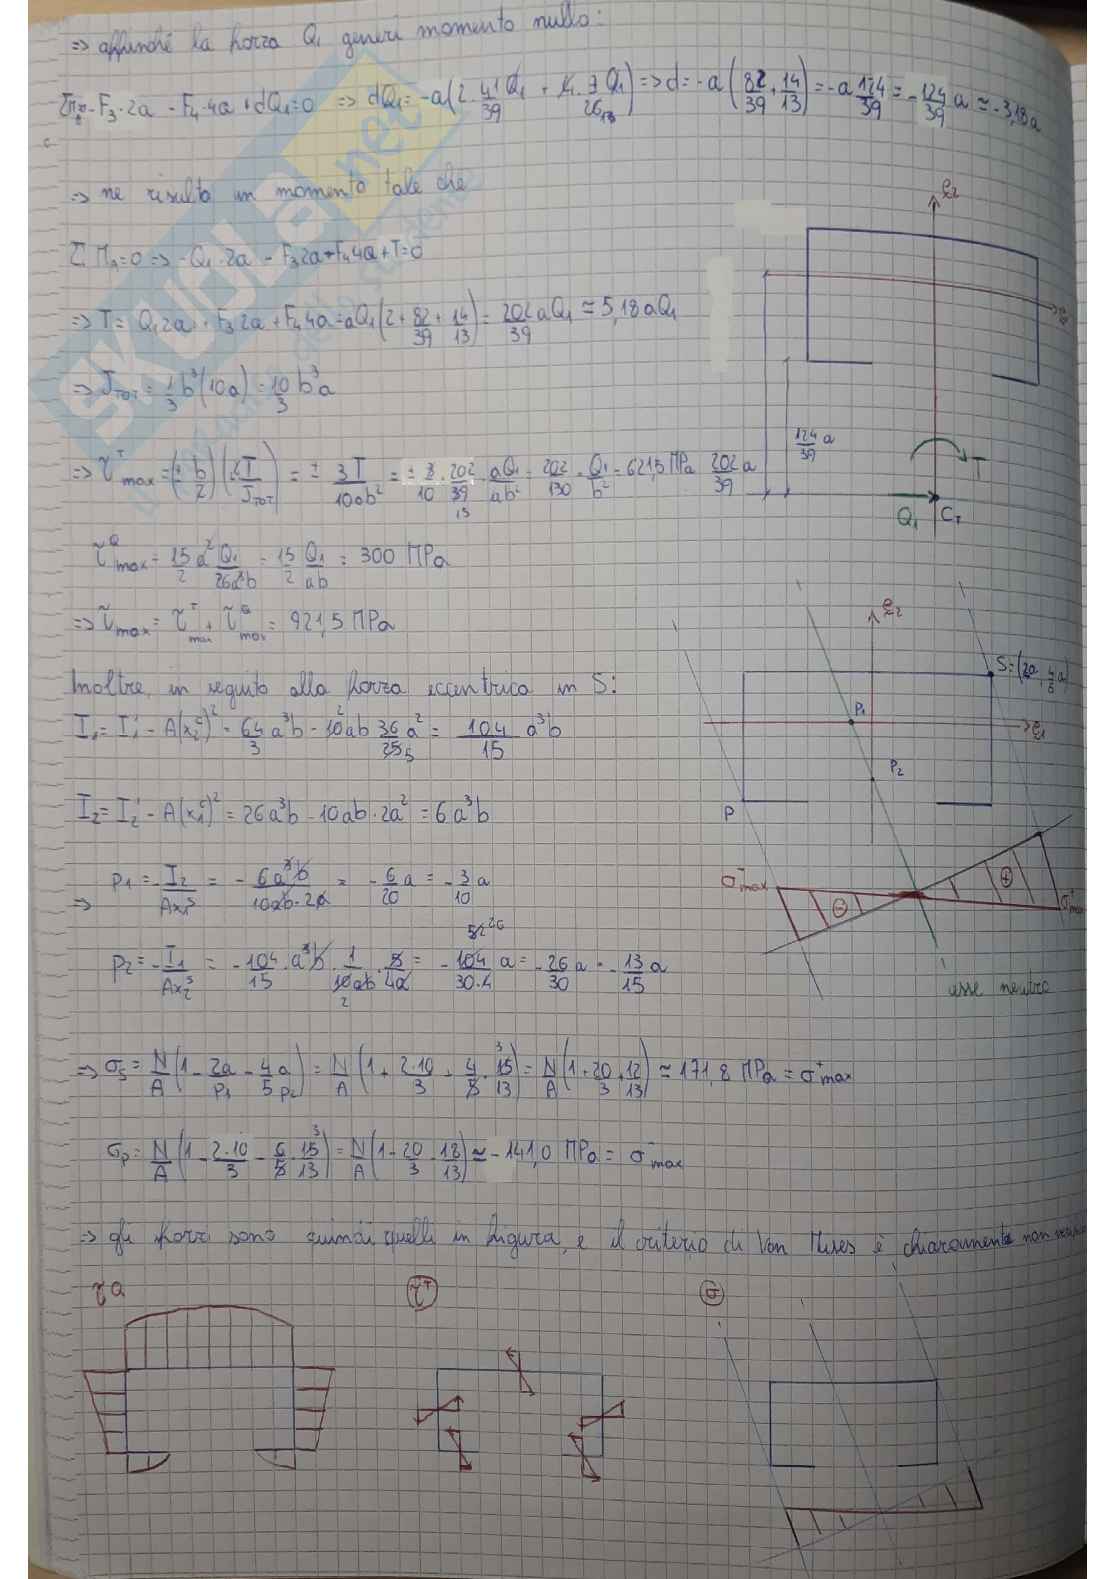 ⇒ affinché la forza Q₁ generi momento nullo:
-F₃·2a - F₄·4a + dQ₁=0 ⇒ dQ₁= -a(2·41Q₁/39 + 4·7Q₁/26) ⇒ d= -a(82/39+14/13) = -a 124/39 = -124/39 a ≃ -3,18a
⇒ ne risulta un momento tale che
⇒ -Q₁·2a - F₃2a - F₄4a + T=0
⇒ T= Q₁2a + F₃2a + F₄4a = aQ₁(2+82/39+14/13) = 202/39 aQ₁ ≃ 5,18aQ₁
⇒ J_TOT = 1/3 b³(10a) = 10/3 b³a
⇒ τᵀmax = (± b/2)(2T/J_TOT) = ± 3T/10ab² = ± 3/10·202/39·aQ₁/ab² = 202/130·Q₁/b² = 621,5 MPa
τ^Q max = 15/2 a² Q₁/26a³b = 15/2 Q₁/ab = 300 MPa
⇒ τmax = τᵀmax + τ^Q max = 921,5 MPa
Inoltre, in seguito alla forza eccentrica in S:
I₁= I₁' - A(x₂ᶜ)² = 64/3 a³b - 10ab 36/25 a² = 104/15 a³b
I₂= I₂' - A(x₁ᶜ)² = 26a³b - 10ab·2a² = 6a³b
⇒ p₁ = -I₂/Ax₁ˢ = - 6a³b/10ab·2a = -6/20 a = -3/10 a
p₂ = -I₁/Ax₂ˢ = -104/15·a³b·1/10ab·5/4a = -104/30·4 a = -26/30 a = -13/15 a
⇒ σs = N/A (1 - 2a/p₁ - 4a/5p₂) = N/A (1 + 2·10/3 + 4/5·15/13) = N/A (1+20/3+12/13) ≃ 171,8 MPa = σ⁺max
σp = N/A (1 - 2·10/3 - 6/5·15/13) = N/A (1 - 20/3 - 18/13) ≃ -141,0 MPa = σ⁻max
⇒ gli sforzi sono quindi quelli in figura, e il criterio di Von Mises è chiaramente non
τQ
τᵀ
σ
202/39 a
124/39 a
T
Q₁
Cт
ξ₂
ξ₂
S=(2a, 4/5 a)
P₁
ξ₁
P₂
P
σ⁻max
⊖
⊕
σ⁺max
asse neutro
SKUOLA.net